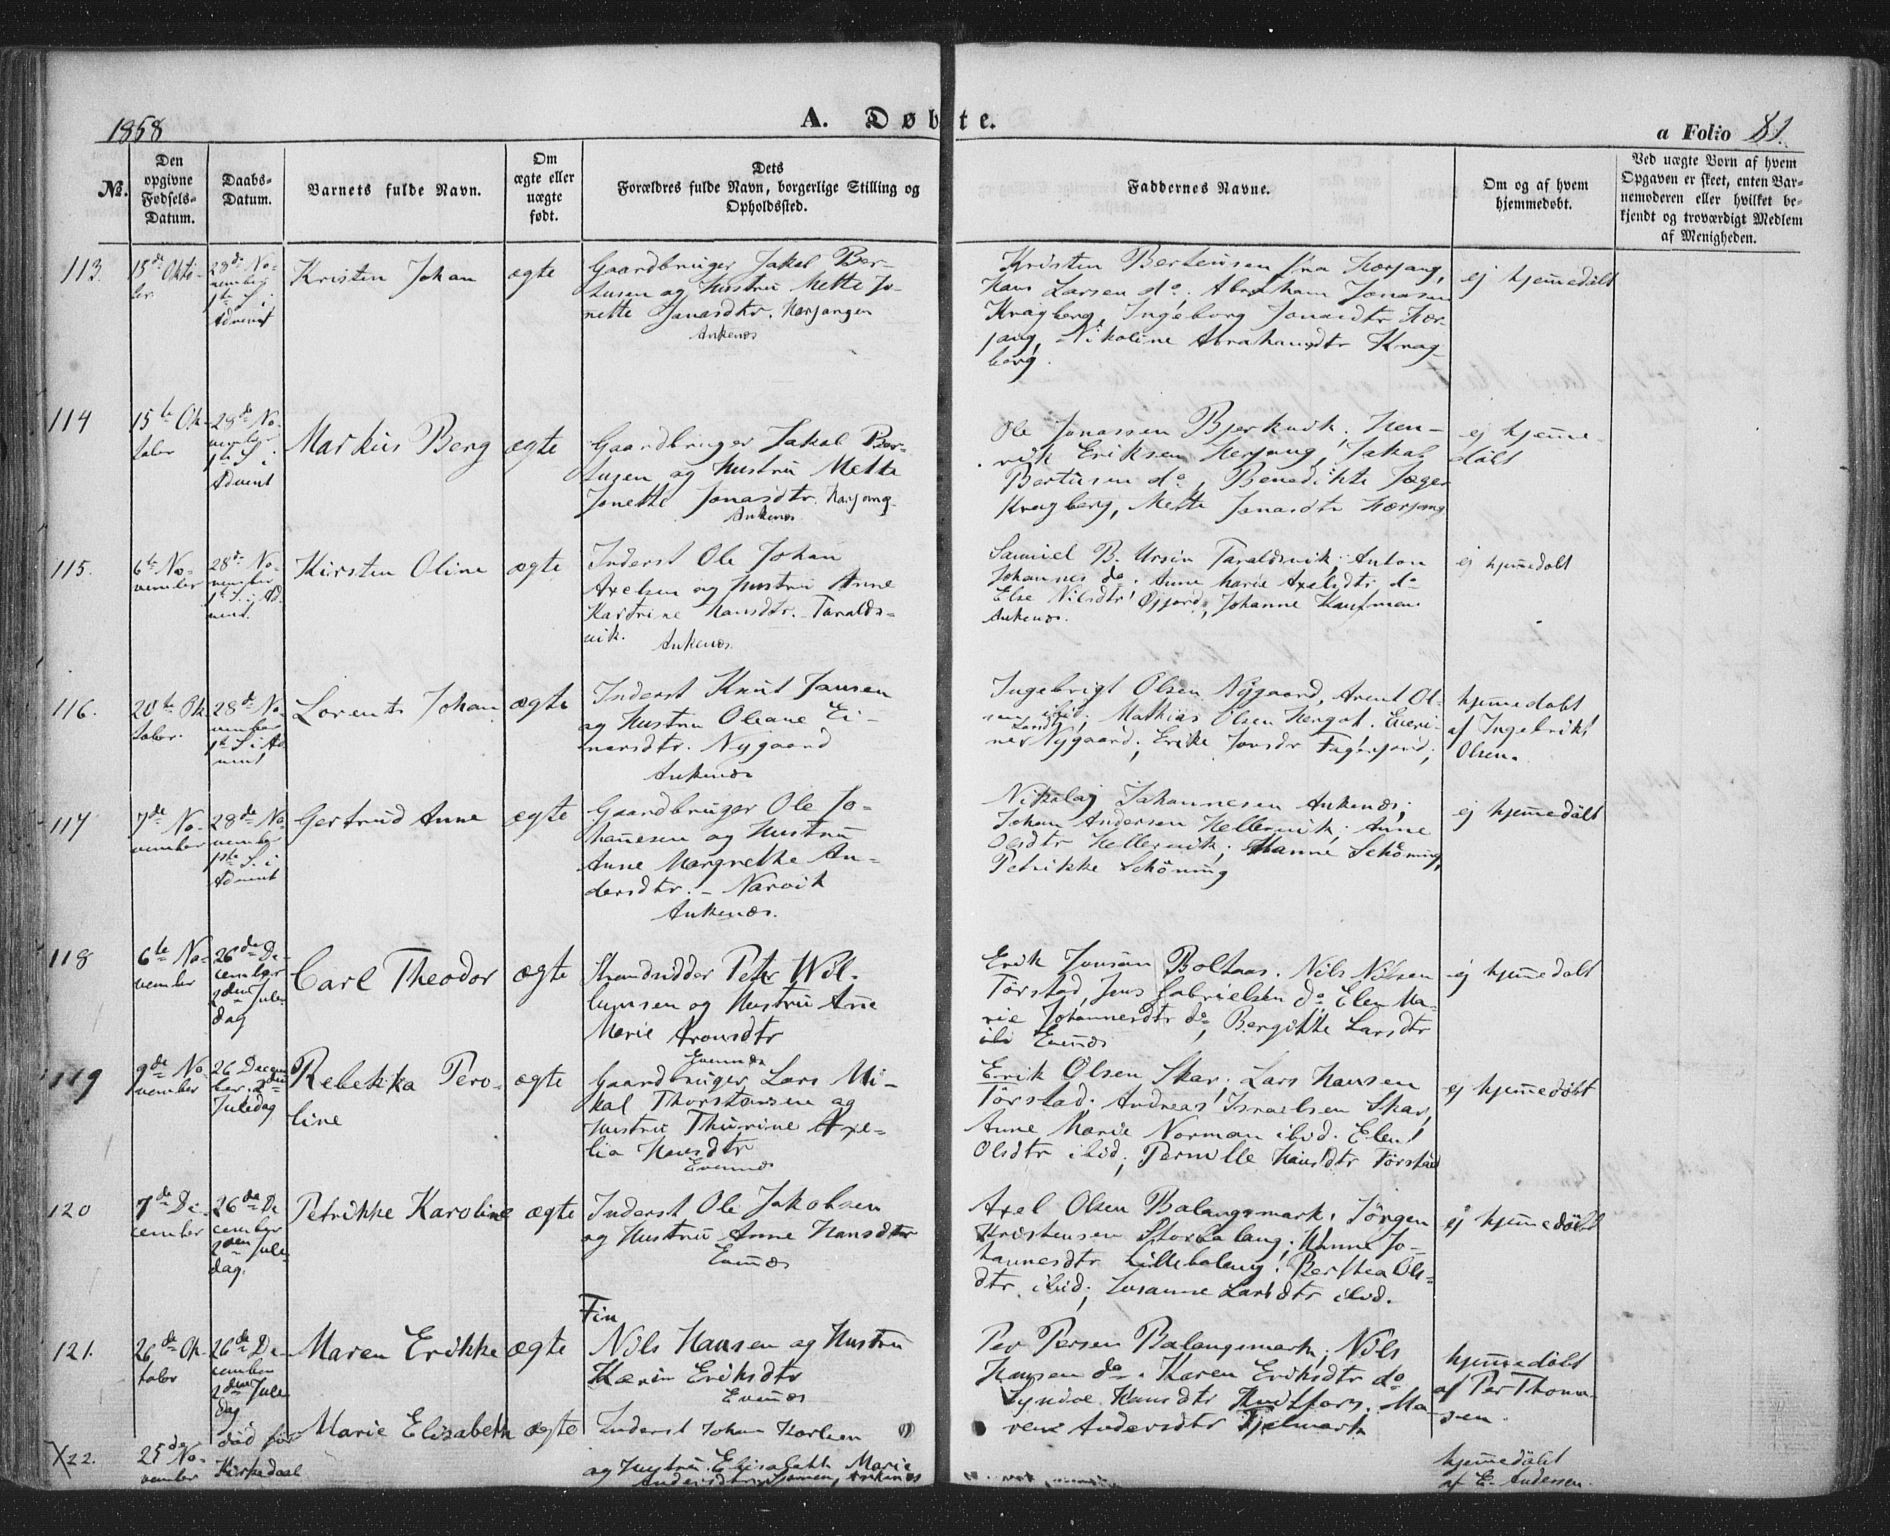 1858
A. Døbte.
a Folio 81.
No.
Den opgivne Fødsels-Datum.
Daabs-Datum.
Barnets fulde Navn.
Om ægte eller uægte født.
Dets Forældres fulde Navn, borgerlige Stilling og Opholdssted.
Faddernes Navne.
Om og af hvem hjemmedøbt.
Ved uægte Børn af hvem Opgaven er skeet, enten Barnemoderen eller hvilket bekjendt og troværdigt Medlem af Menigheden.
113.
15de Okto-
ber
28de No-
vember
1ste S. i
Advent
Kristen Johan
ægte
Gaardbruger Jakob Ber-
tusen og Hustru Mette Jo-
nette Jonasdtr. Herjangen
Ankenæs
Kristen Berteusen fra Herjang,
Hans Larsen do; Abraham Jonasen
Kragberg, Ingeborg Jonasdtr Her-
jang, Nikoline Abrahamsdtr Krag-
berg.
ej hjemmedøbt
114
15te Ok-
tober
28de No-
vember
1ste S. i
Advent
Markus Berg
ægte
Gaardbruger Jakob Ber-
tusen og Hustru Mette
Jonette Jonasdtr. Herjang
Ankenæs
Ole Jonassen Bjerkvik. Hen-
rik Eriksen Herjang, Jakob
Bertusen do, Benedikte Jæger
Kragberg, Mette Jonasdtr Herjang
ej hjemme-
døbt
115.
6te No-
vember
28de No-
vember
1ste S. i Ad-
vent.
Kirsten Oline
ægte
Inderst Ole Johan
Axelsen og Hustru Anne
Kartrine Hansdtr. Taralds-
vik.
Ankenæs.
Samuel B. Ursin Taraldsvik, Anton
Johannes do. Anne Marie Axelsdtr do
Else Nilsdtr Øjjord, Johanne Kaufman
Ankenæs.
ej hjemmedøbt
116.
20te Ok-
tober.
28de No-
vember
1ste S. i Ad-
vent
Lorents Johan
ægte
Inderst Knut Jansen
og Hustru Oliane Ei-
narsdtr. Nygaard
Ankenæs
Ingebrigt Olsen Nygaard, Arent Ol-
sen ibid; Mathias Olsen Hergot.
Nygaard; Erike Jonsdr Fagernjord;
hjemmedøbt
af Ingebrikt
Olsen.
117
7de No-
vember
28de No-
vember
1ste S. i
Advent
Gertrud Anne
ægte
Gaardbruger Ole Jo-
hannesen og Hustru
Anne Margrethe An-
dersdtr. - Narvik
Ankenæs.
Nikolaj Johannesen Ankenæs;
Johan Andersen Hellervik; Anne
Olsdtr Hellervik; Hanne Schöning,
Petrikke Schöning
ej hjemmedøbt
118
6te No-
vember
26de De-
cember
2den Jule-
dag
Carl Theodor
ægte
Strandsidder Peter Wil-
lumsen og Hustru Ane
Marie Aronsdtr
Evenæs
Erik Jonsøn Boltaas. Nils Nilsen
Tørstad, Jens Gabrielsen do Elen Ma-
rie Johannesdtr do, Bergitte Larsdtr
ibi Evenæs
ej hjemmedøbt
119
9de No-
vember
26 Decem-
ber. 2den
Juledag
Rebekka Pero-
line
ægte
Gaardbruger Lars Mi-
kal Thorstensen og
Hustru Thurine Axe-
lia Hansdtr
Evenæs
Erik Olsen Skar; Lars Hansen
Tørstad; Andreas Israelsen Skar,
Anne Marie Norman ibid. Elen
Olsdtr ibid; Pernille Hansdtr Tørstad
ej hjemmedøbt
120
7de De-
cember
26de De-
cember
2den Jule-
dag.
Petrikke Karoline
ægte
Inderst Ole Jakobsen
og Hustru Anne Hansdtr
Evenæs
Axel Olsen Balangsmark, Jörgen
Kristensen Storbalang; Hanne Jo-
hannesdtr Lillebalang; Berthea Ols-
dtr. ibid; Susanne Larsdtr ibid.
ej hjemmedøbt
121.
26de Ok-
tober
26de De-
cember
2den Jule-
dag
Maren Erikke
ægte
Fin
Nils Hansen og Hustru
Karin Eriksdtr
Evenæs
Per Persen Balangsmark; Nils
Hansen do. Karen Eriksdtr do
Hansdtr. Ma-
ren Andersdtr
hjemmedøbt
af Per Thoma-
sen.
122.
25de No-
vember
død før
Kirkedaab
Marie Elisabeth
ægte
Inderst Johan Karlsen
og Hustru Elisabeth Marie
Andersdtr Ankenæs
hjemmedøbt
af E. Andersen.